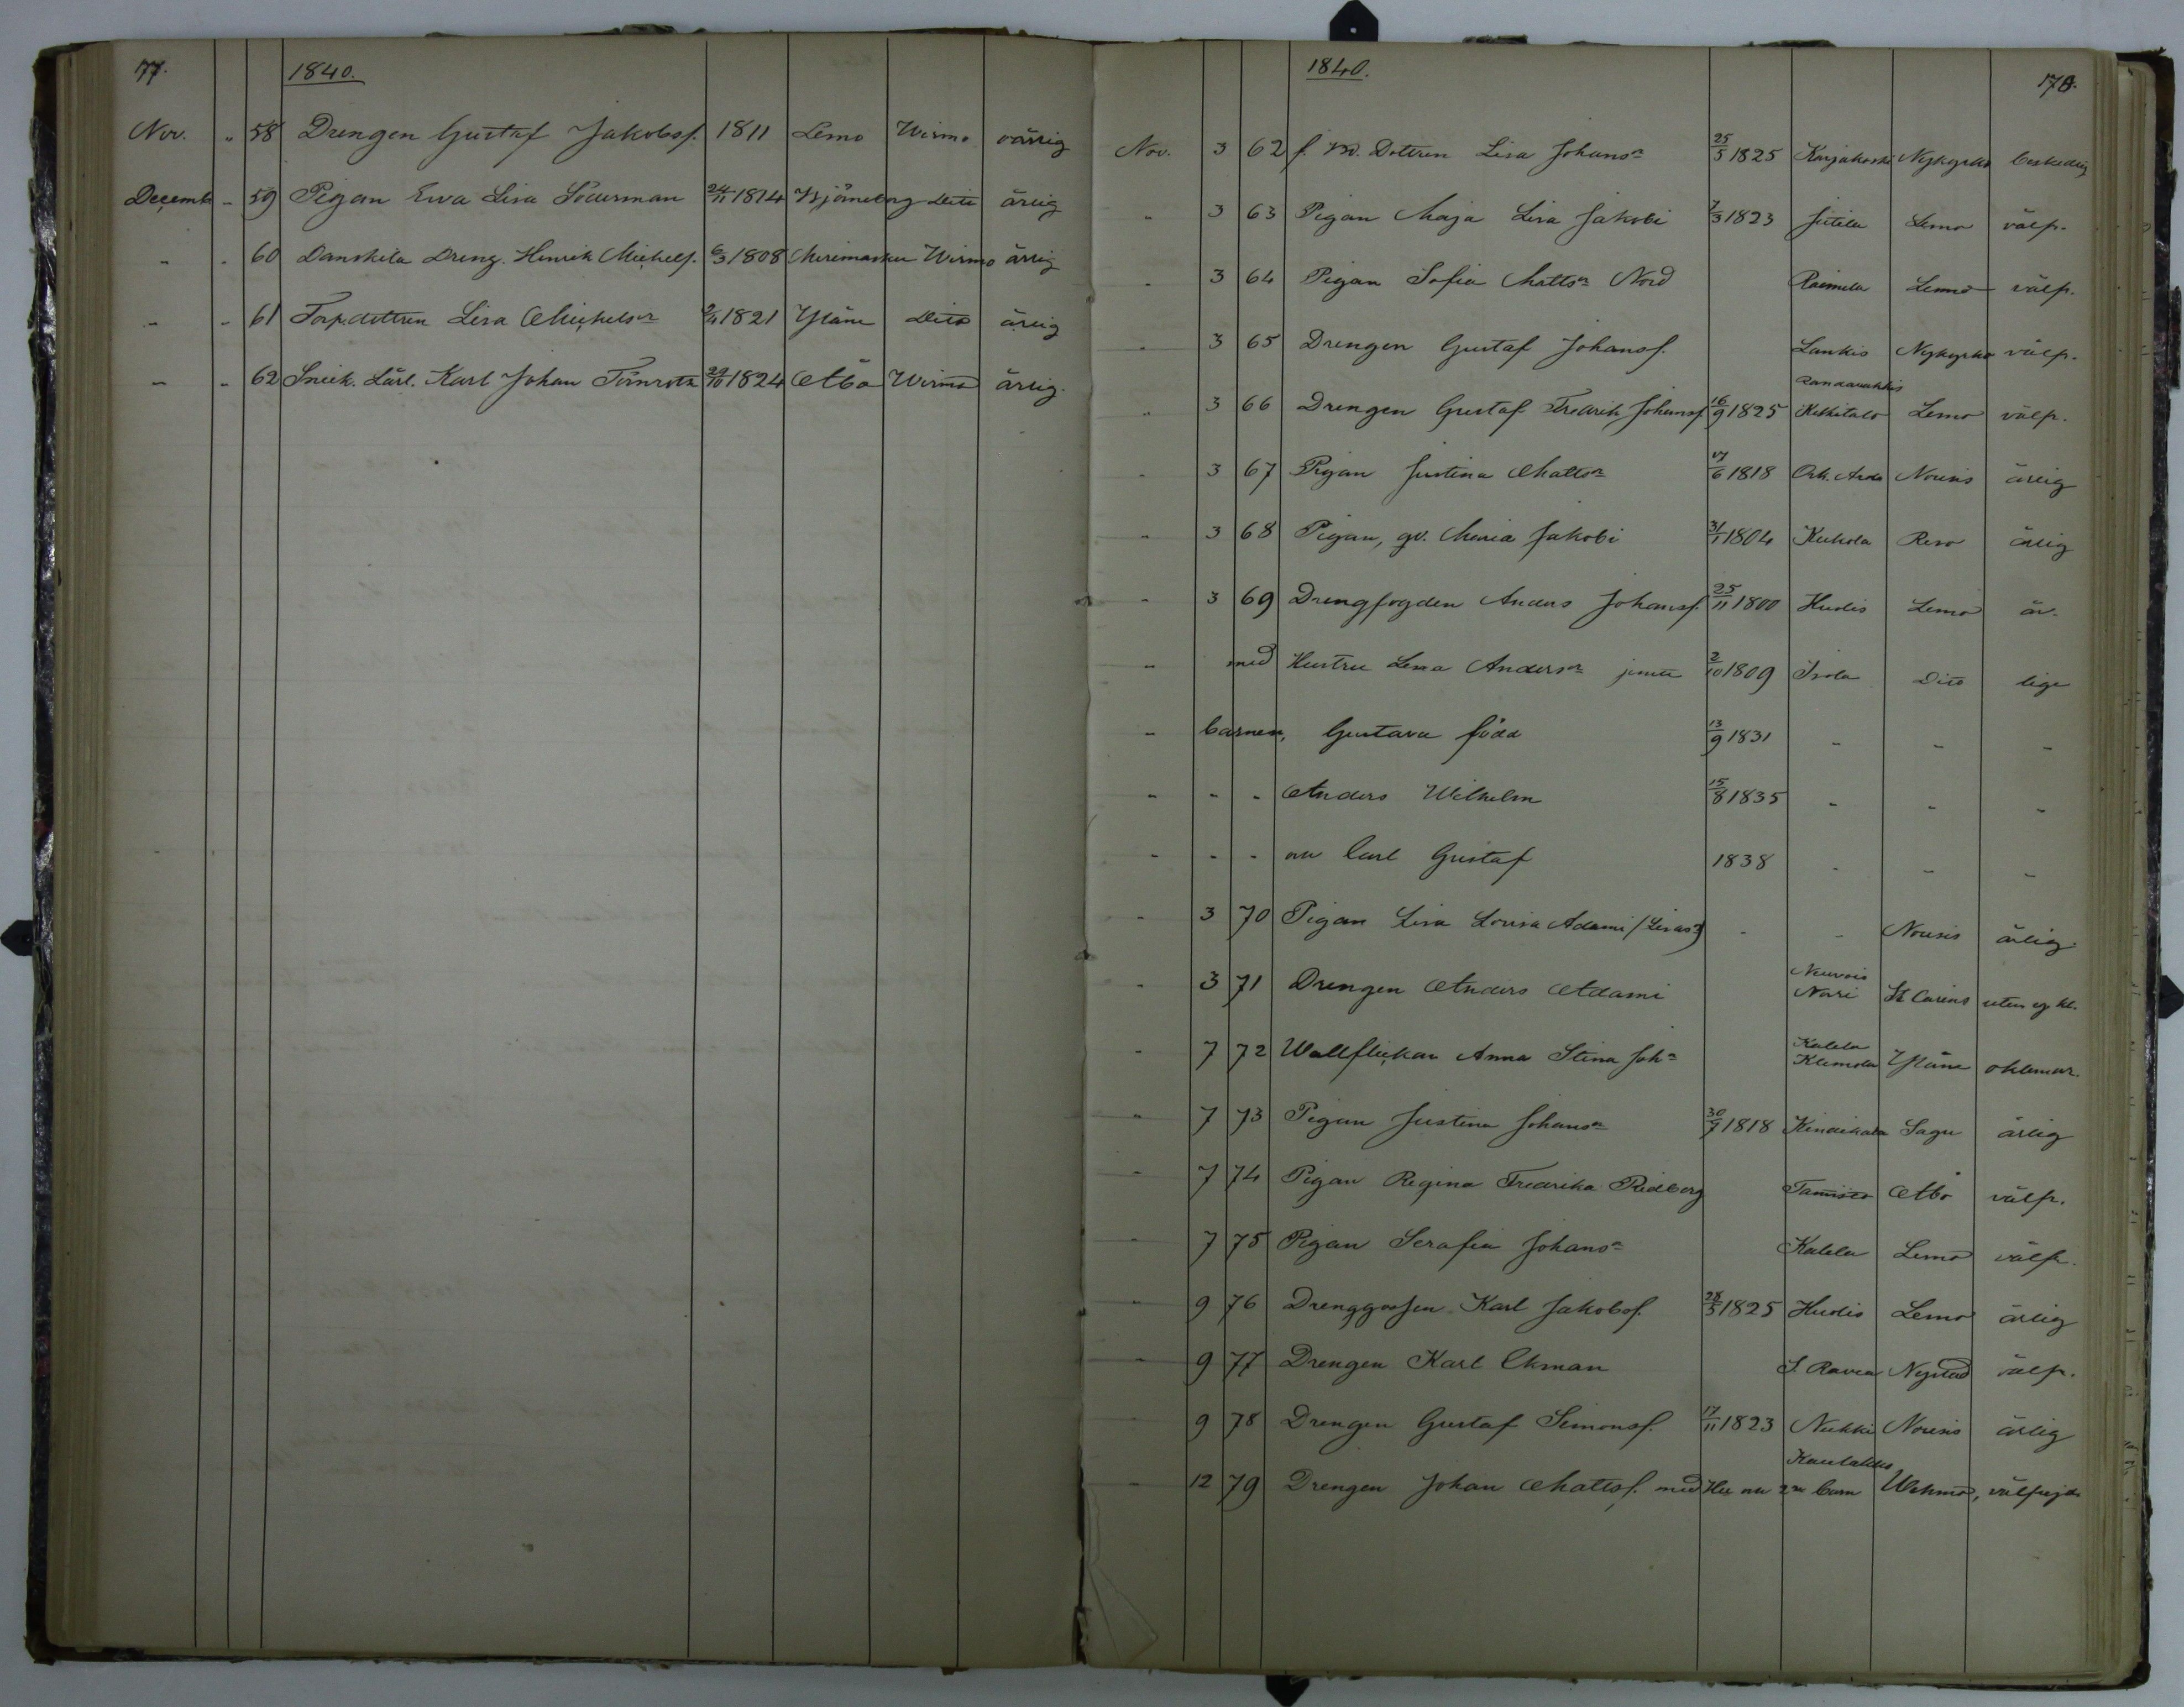 77.
1840.
Nov. " 58 Drengen Gustaf Jakobsf. 1811 Lemo Wirmo oärlig
Decemb. - 59 Pigan Ewa Lisa Söderman 24/11 1814 Björneborg Dito ärlig
- - 60 Danskila Dreng. Henrik Michelsf. 6/3 1808 Merimasku Wirmo ärlig
- - 61 Torp.dottren Lisa Michelsr 2/11 1821 Yläne Dito ärlig
- - 62 Snick. Lärl. Karl Johan Törnroth 29/10 1824 Åbo Wirmo ärlig.
1840.
178.
Nov. 3 62 f. Dottren Lisa Johansr 25/5 1825 Karjakoski Nykyrko beskedlig
- 3 63 Pigan Maja Lisa Jakobi 7/3 1823 Jutila Lemo välfr.
- 3 64 Pigan Sofia Mattsr Nord Raimela Lemo välfr.
- 3 65 Drengen Gustaf Johansf. Lankis Nykyrko välfr.
Randavahkis
" 3 66 Drengen Gustaf Fredrik Johansf. 16/9 1825 Keskitalo Lemo välfr.
- 3 67 Pigan Justina Mattsr 17/6 1818 Nousis ärlig
- 3 68 Pigan, gv. Maria Jakobi 31/1 1804 Kukola Reso ärlig
- 3 69 Drengfogden Anders Johansf. 25/11 1800 Hudis Lemo är-
- med Hustru Lena Andersr jemte 2/10 1809 Isola Dito lige
- barnen, Gustava född 13/9 1831 - - -
- - - Anders Wilhelm 15/8 1835 - - -
- - - Carl Gustaf 1838 - - -
- 3 70 Pigan Lisa Lovisa Adami - - Nousis ärlig
Neuvois
- 3 71 Drengen Anders Adami Nari St Carins utan
Kalela
- 7 72 Wallflickan Anna Stina Johr Klemola Yläne oklemar.
" 7 73 Pigan Justina Johansr 30/7 1818 Kindikala Sagu ärlig
- 7 74 Pigan Regina Fredrika Rudberg Tamisto Åbo välfr.
- 7 75 Pigan Serafia Johansr Kalela Lemo välfr.
- 9 76 Drenggossen Karl Jakobsf. 28/5 1825 Hudis Lemo ärlig
- 9 77 Drengen Karl Ekman S. Ravea Nystad välfr.
- 9 78 Drengen Gustaf Simonsf. 17/11 1823 Nukki Nousis ärlig
Kautakko
- 12 79 Drengen Johan Mattsf. med Hu barn Wehmo, välfrejd.